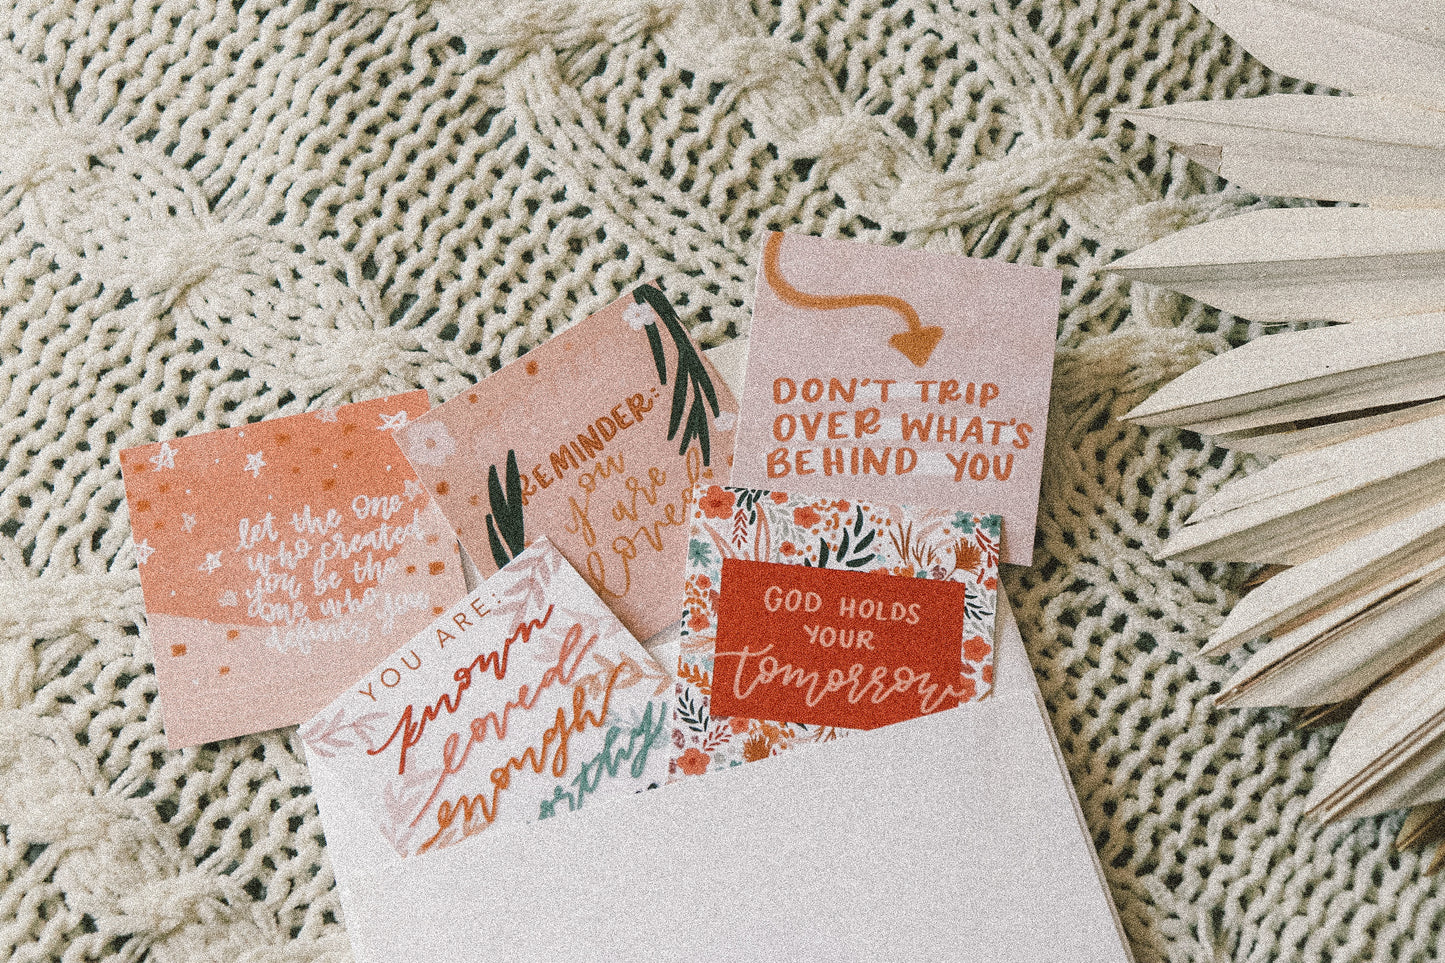 let the one
who created
you be the
one who
defines you
REMINDER:
you
are
loved
DON'T TRIP
OVER WHAT'S
BEHIND YOU
YOU ARE:
known
loved
enough
GOD HOLDS
YOUR
tomorrow